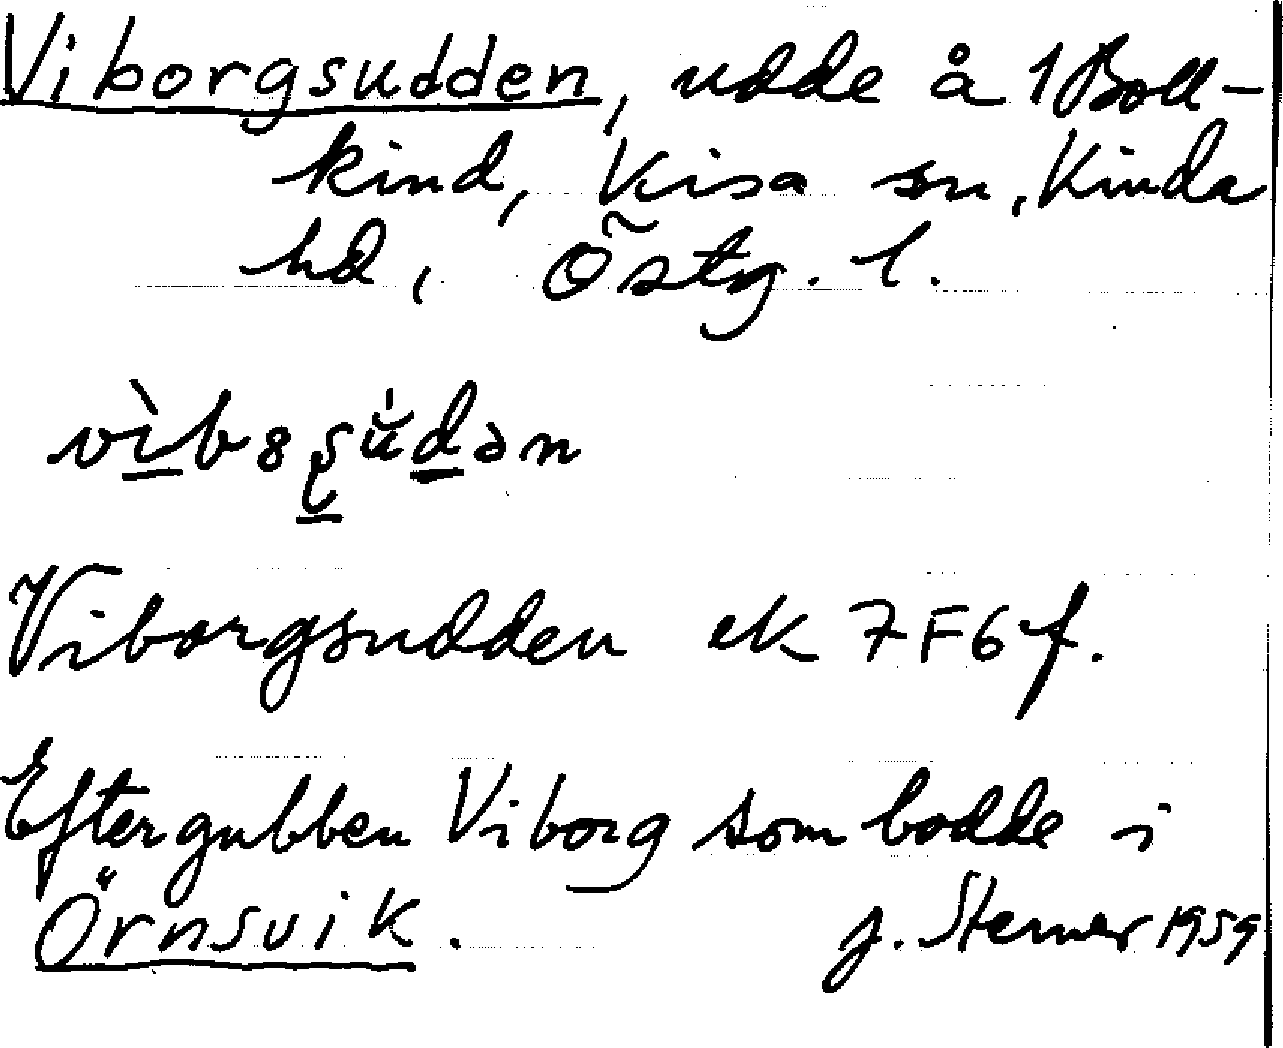 Viborgsudden, udde å 1 Boll-
kind, Kisa sn, Kinda
hd, Östg. l.
Viborgsudden ek 7F6f.
Efter gubben Viborg som bodde i
Örnsvik. J. Sterner 1959